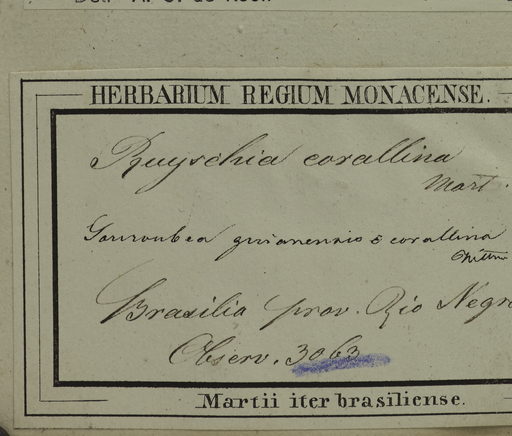 HERBARIUM REGIUM MONACENSE.
Ruyschia corallina
Mart.
Souroubea guianensis δ corallina
Brasilia prov. Rio Negro
Observ. 3063
Martii iter brasiliense.